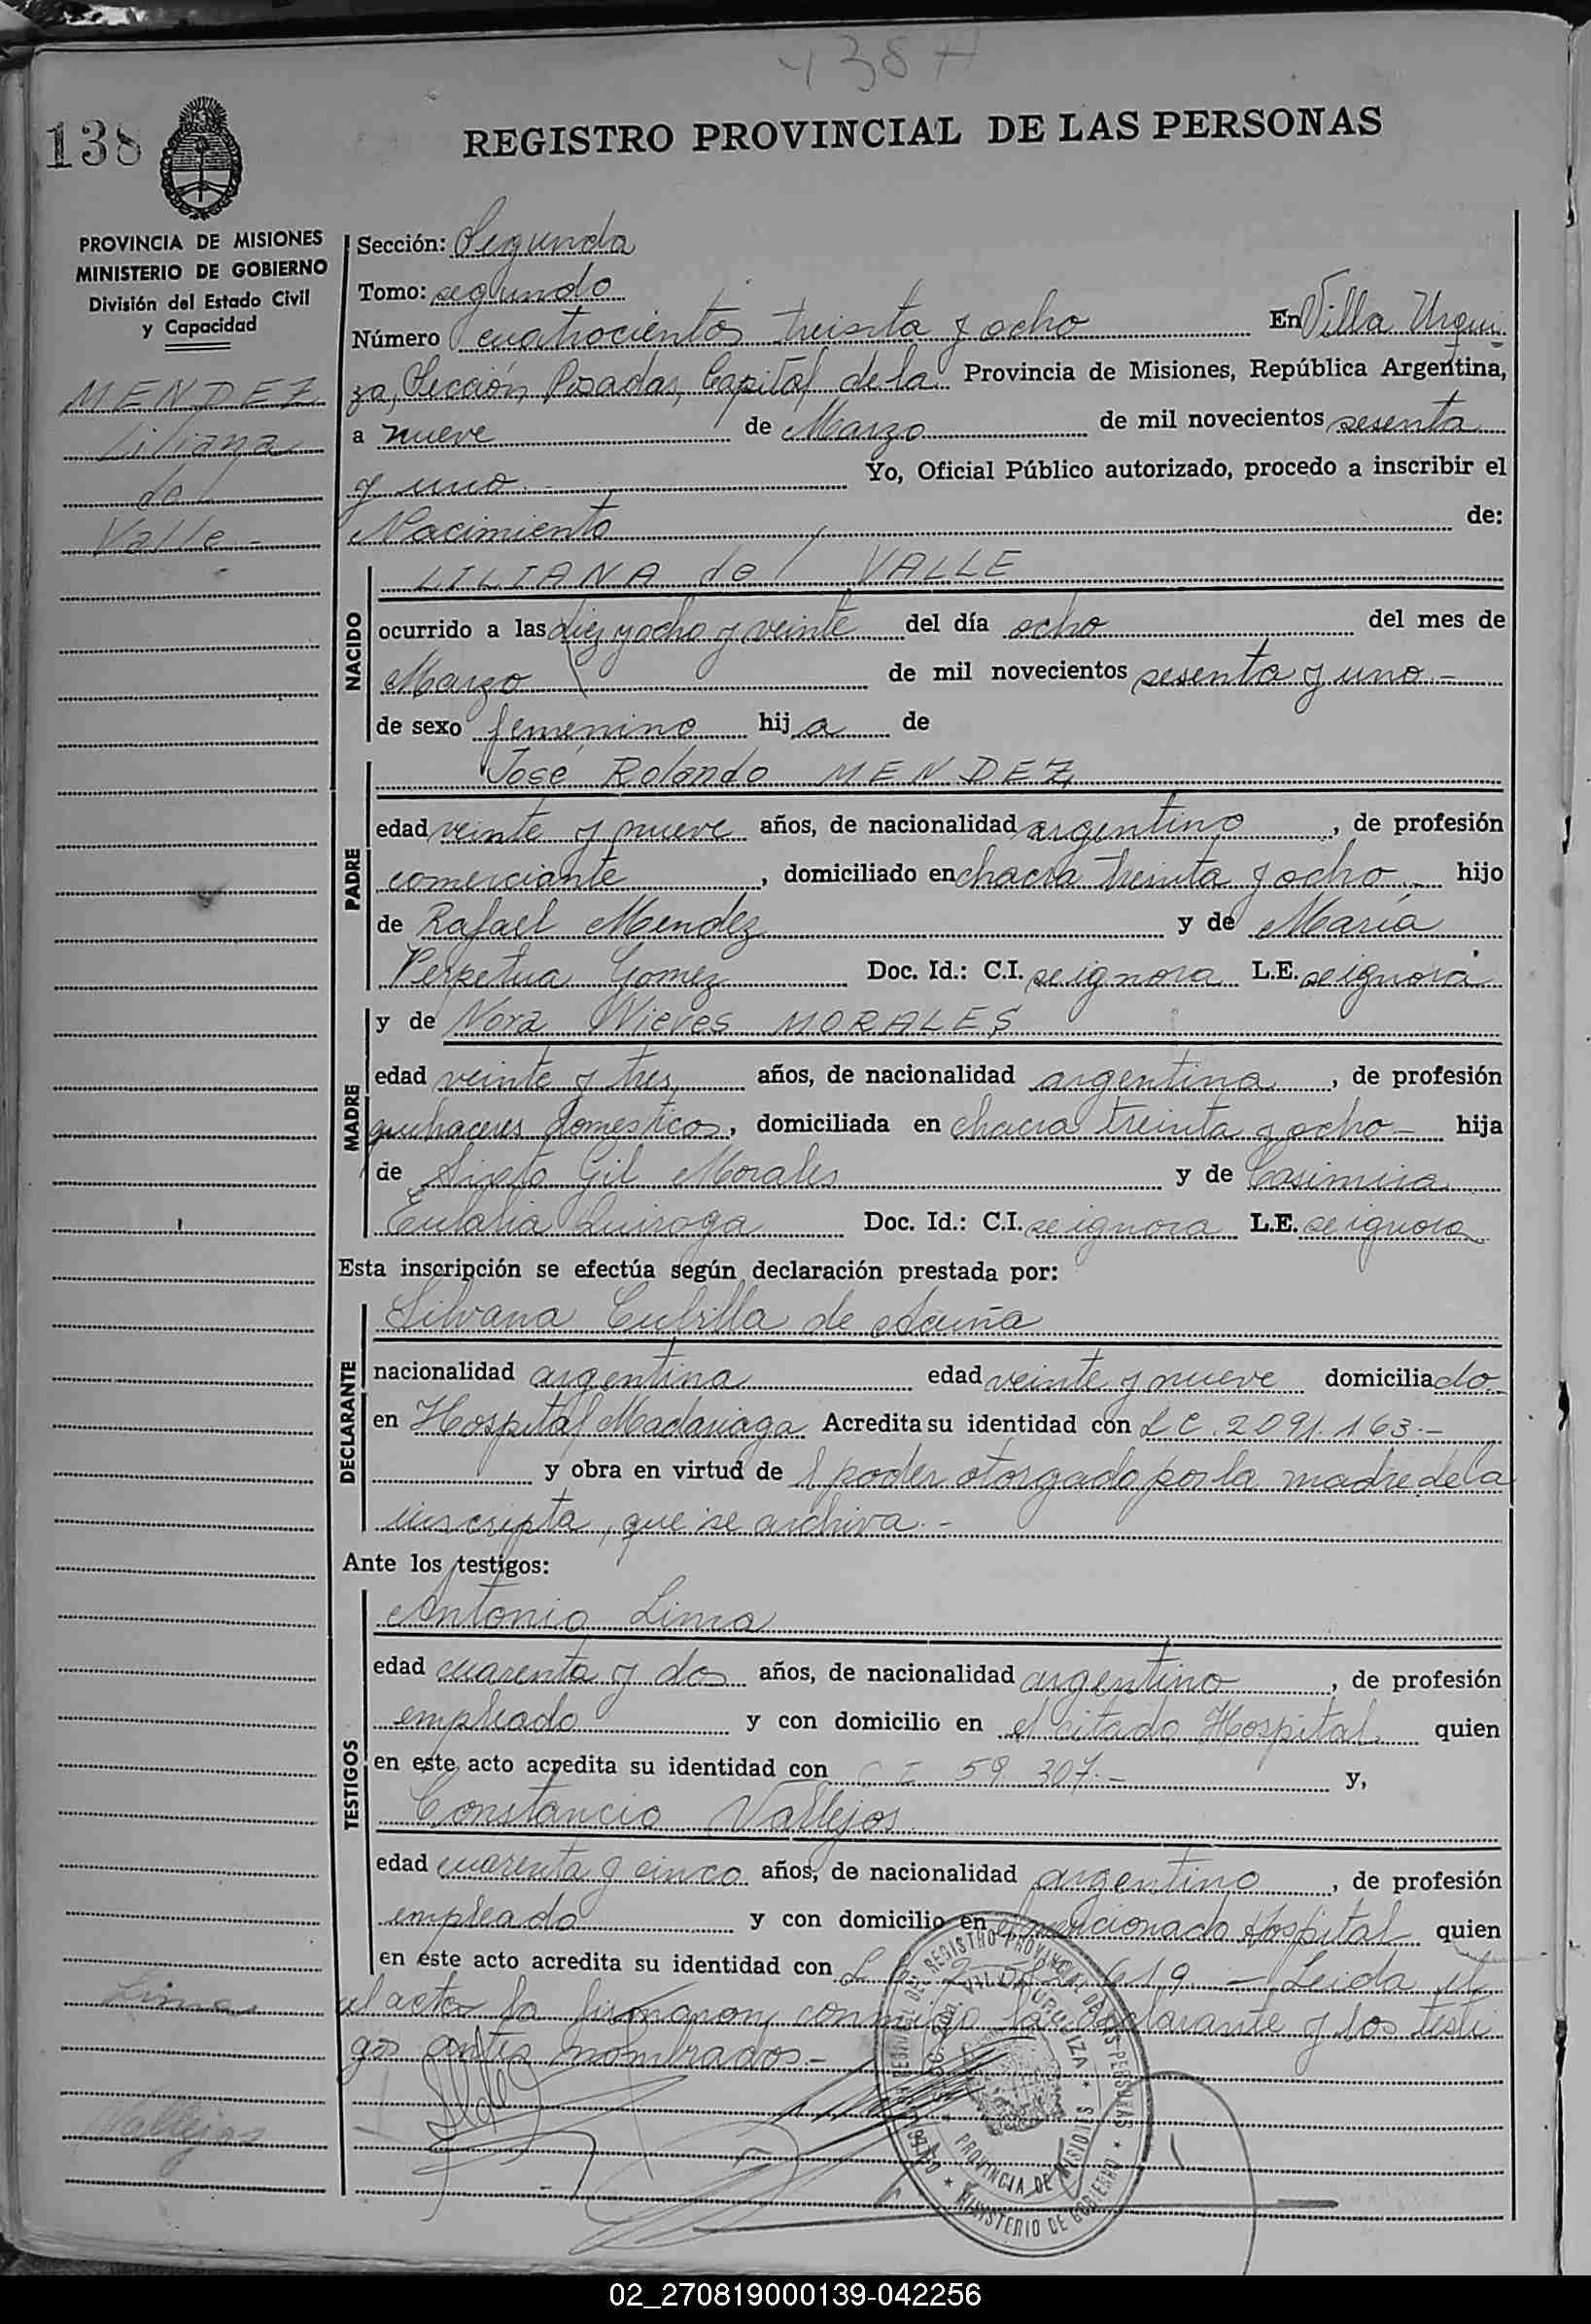 438 H
138
REGISTRO PROVINCIAL DE LAS PERSONAS
PROVINCIA DE MISIONES
MINISTERIO DE GOBIERNO
División del Estado Civil
y Capacidad
MENDEZ
Liliana
del
Valle.-
Sección: Segunda
Tomo: segundo
Número cuatrocientos treinta y ocho En Villa Urqui
za, Sección Posadas, Capital de la Provincia de Misiones, República Argentina,
a nueve de Marzo de mil novecientos sesenta
y uno.- Yo, Oficial Público autorizado, procedo a inscribir el
Nacimiento de:
NACIDO
LILIANA del VALLE
ocurrido a las diez y ocho y veinte del día ocho del mes de
Marzo de mil novecientos sesenta y uno.-
de sexo femenino hija de
PADRE
José Rolando MENDEZ
edad veinte y nueve años, de nacionalidad argentino, de profesión
comerciante, domiciliado en chacra treinta y ocho.- hijo
de Rafael Mendez y de María
Perpetua Gomez Doc. Id.: C.I. se ignora L.E. se ignora
MADRE
y de Nora Nieves MORALES
edad veinte y tres años, de nacionalidad argentina, de profesión
quehaceres domesticos, domiciliada en chacra treinta y ocho- hija
de Sixto Gil Morales y de Casimira
Eulalia Quiroga Doc. Id.: C.I. se ignora L.E. se ignora
Esta inscripción se efectúa según declaración prestada por:
DECLARANTE
Silvana Cubilla de Acuña
nacionalidad argentina edad veinte y nueve domiciliado
en Hospital Madariaga Acredita su identidad con L C. 2091.163.-
y obra en virtud de l poder otorgado por la madre de la
inscripta, que se archiva.-
Ante los testigos:
TESTIGOS
Antonio Lima
edad cuarenta y dos años, de nacionalidad argentino, de profesión
empleado y con domicilio en el citado Hospital quien
en este acto acredita su identidad con C I 59.307.- y,
Constancio Vallejos
edad cuarenta y cinco años, de nacionalidad argentino, de profesión
empleado y con domicilio en el mencionado Hospital quien
en este acto acredita su identidad con 619.- Leida el
el acta la firmaron conmigo la declarante y los testi
gos antes nombrados.-
Lima
Vallejos
REGISTRO PROVINCIAL DE LAS PERSONAS
VILLA URQUIZA
PROVINCIA DE MISIONES
MINISTERIO DE GOBIERNO
02_270819000139-042256